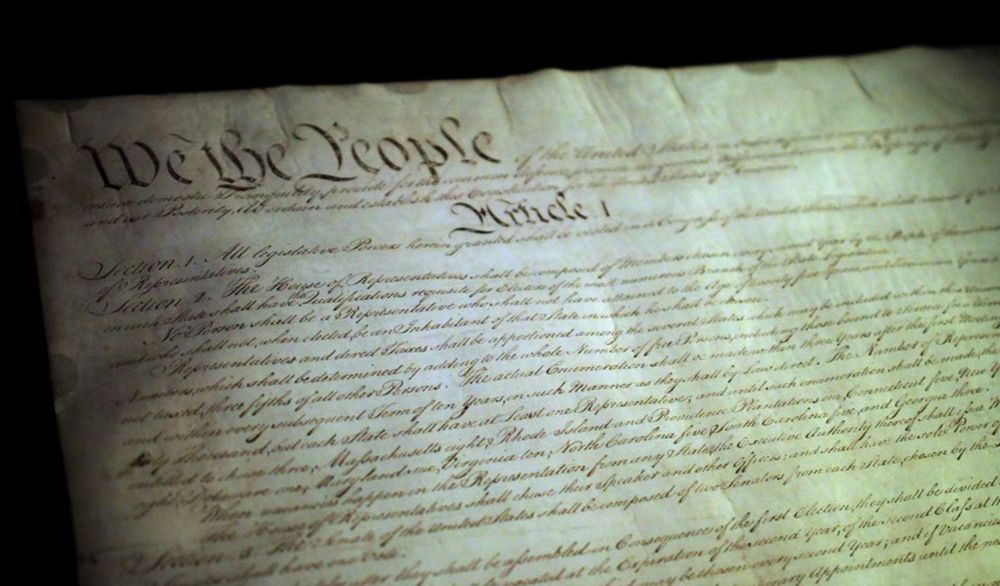 We the People of the United States
insure domestic Tranquility, provide for the common defence,
and our Posterity, do ordain and establish this Constitution for the United States of America.
Article I
Section. 1. All legislative Powers herein granted shall be vested in a Congress of the United States
of Representatives.
Section. 2. The House of Representatives shall be composed of Members chosen every second Year by the People of the
in each State shall have the Qualifications requisite for Electors of the most numerous Branch of the State Legislature.
No Person shall be a Representative who shall not have attained to the Age of twenty five Years,
and who shall not, when elected, be an Inhabitant of that State in which he shall be chosen.
Representatives and direct Taxes shall be apportioned among the several States which may be included within this
Numbers, which shall be determined by adding to the whole Number of free Persons, including those bound to Service for a
not taxed, three fifths of all other Persons. The actual Enumeration shall be made within three Years after the first Meeting
and within every subsequent Term of ten Years, in such Manner as they shall by Law direct. The Number of
thirty Thousand, but each State shall have at Least one Representative; and until such enumeration shall be made,
entitled to chuse three, Massachusetts eight, Rhode Island and Providence Plantations one, Connecticut five, New
eight, Delaware one, Maryland six, Virginia ten, North Carolina five, South Carolina five, and Georgia three.
When vacancies happen in the Representation from any State, the Executive Authority thereof shall
The House of Representatives shall chuse their Speaker and other Officers; and shall have the sole Power of
Section. 3. The Senate of the United States shall be composed of two Senators from each State, chosen by the
shall have one Vote.
after they shall be assembled in Consequence of the first Election, they shall be divided
at the Expiration of the second Year, of the second Class at
may be chosen every second Year; and if Vacancies
Appointments until the